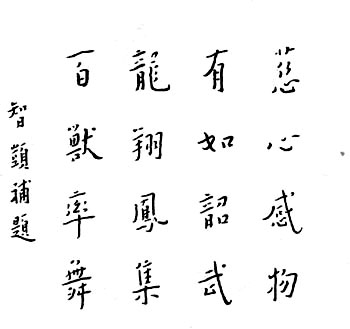 慈心感物
有如韶武
龍翔鳳集
百獸率舞
智顗補題